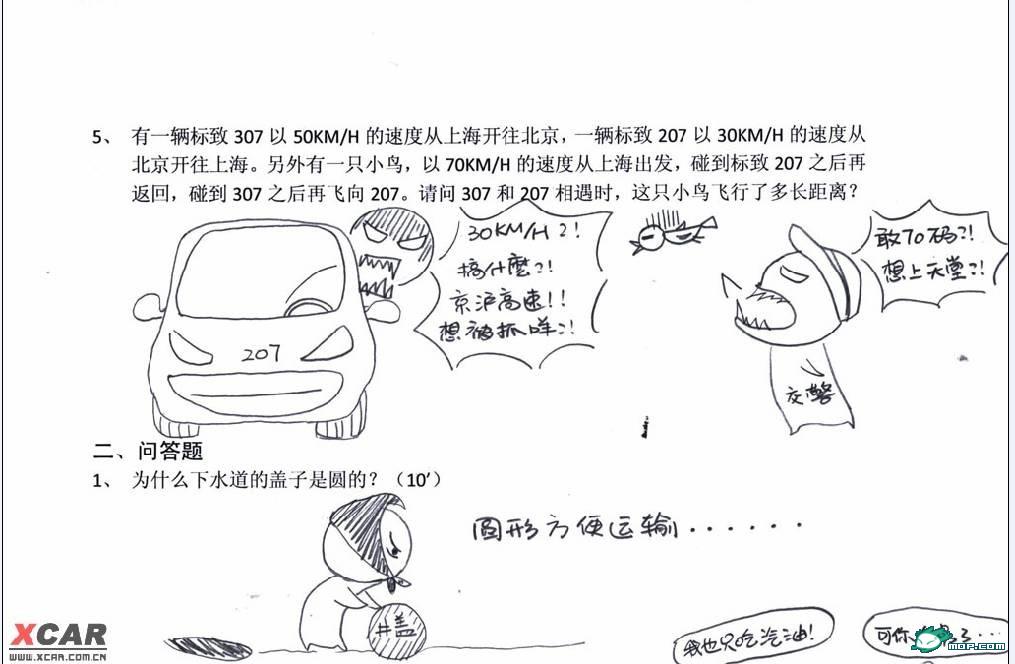 5、 有一辆标致 307 以 50KM/H 的速度从上海开往北京，一辆标致 207 以 30KM/H 的速度从
北京开往上海。另外有一只小鸟，以 70KM/H 的速度从上海出发，碰到标致 207 之后再
返回，碰到 307 之后再飞向 207。请问 307 和 207 相遇时，这只小鸟飞行了多长距离？
30KM/H?!
搞什麽?!
京沪高速!!
想被抓咩?!
敢70码?!
想上天堂?!
207
交警
二、问答题
1、 为什么下水道的盖子是圆的？（10′）
圆形方便运输······
井盖
我也只吃汽油!
可你
了···
XCAR
WWW.XCAR.COM.CN
MOP.COM